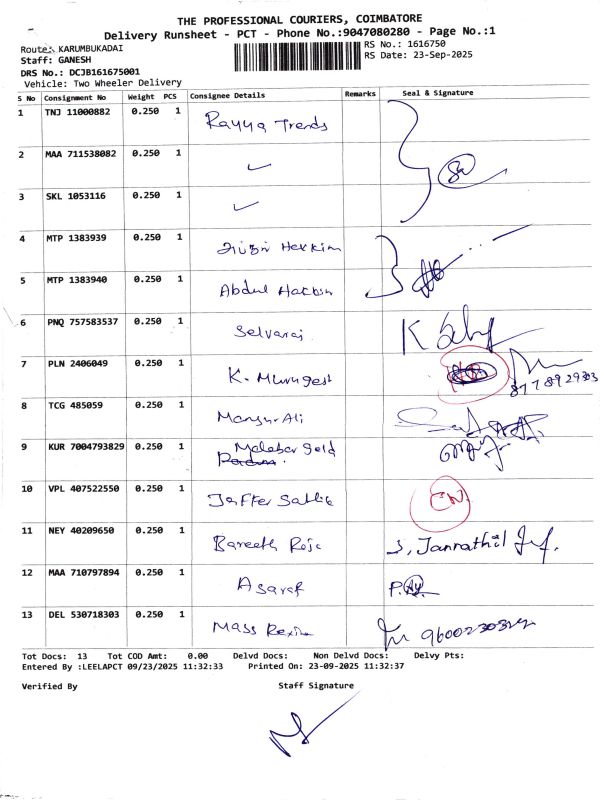 THE PROFESSIONAL COURIERS, COIMBATORE
Delivery Runsheet - PCT - Phone No.:9047080280 - Page No.:1
Route: KARUMBUKADAI
RS No.: 1616750
Staff: GANESH
RS Date: 23-Sep-2025
DRS No.: DCJB161675001
Vehicle: Two Wheeler Delivery
S No Consignment No Weight PCS Consignee Details Remarks Seal & Signature
1 TNJ 11000882 0.250 1 Rayya Trends
2 MAA 711538082 0.250 1
3 SKL 1053116 0.250 1
4 MTP 1383939 0.250 1
5 MTP 1383940 0.250 1 Abdul
6 PNQ 757583537 0.250 1 Selvaraj
7 PLN 2406049 0.250 1 K. Murugesh
8 TCG 485059 0.250 1 Mansur Ali
9 KUR 7004793829 0.250 1 Malabar Gold
10 VPL 407522550 0.250 1 Jaffer
11 NEY 40209650 0.250 1 S. Jannathil
12 MAA 710797894 0.250 1 Asaraf
13 DEL 530718303 0.250 1 Mass
Tot Docs: 13 Tot COD Amt: 0.00 Delvd Docs: Non Delvd Docs: Delvy Pts:
Entered By :LEELAPCT 09/23/2025 11:32:33 Printed On: 23-09-2025 11:32:37
Verified By Staff Signature